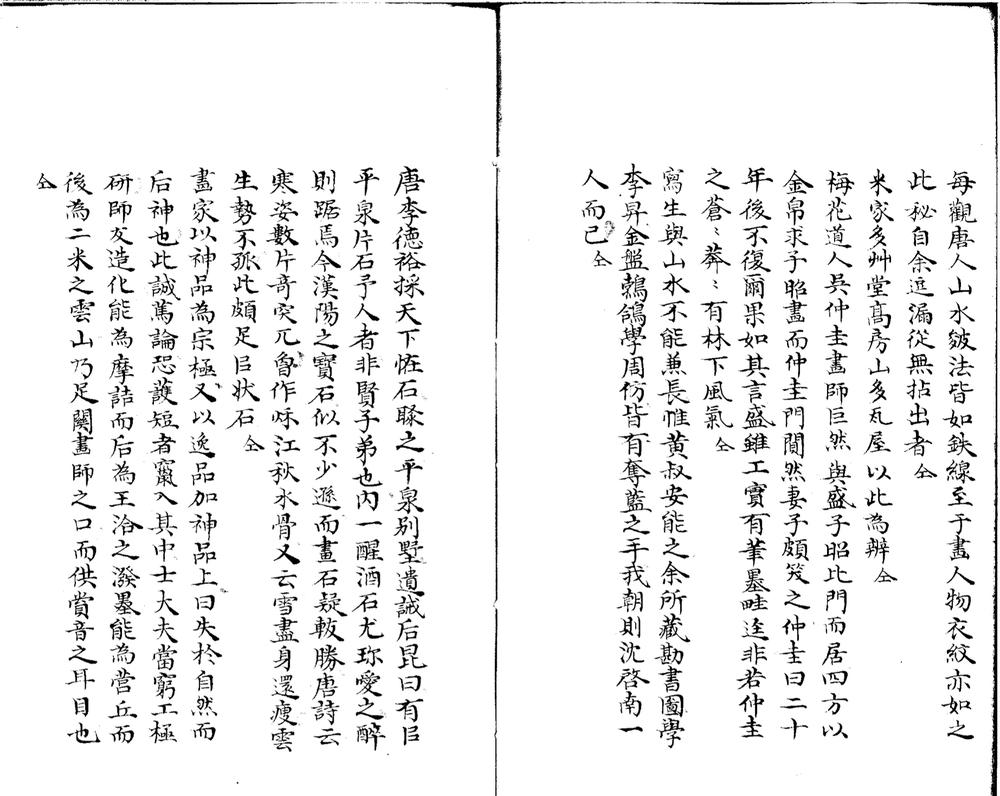 每觀唐人山水皴法皆如鉄線至于畫人物衣紋亦如之
此秘自余逗漏從無拈出者仝
米家多艸堂髙房山多瓦屋以此為辨仝
梅花道人吳仲圭畫師巨然與盛子昭比門而居四方以
金帛求子昭畫而仲圭門閴然妻子頗笑之仲圭曰二十
年後不復爾果如其言盛雖工實有筆墨畦迳非若仲圭
之蒼〻莽〻有林下風氣仝
寫生與山水不能兼長惟黄叔安能之余所藏勘書圖學
李昇金盤鵓鴿學周仿皆有奪藍之手我朝則沈啓南一
人而已仝
唐李德裕採天下恠石聚之平泉别墅遺誡后昆曰有㠯
平泉片石予人者非賢子弟也内一醒酒石尤珎愛之醉
則踞焉今漢陽之寶石似不少遜而畫石疑軼勝唐詩云
寒姿數片竒突兀曾作秌江秋水骨又云雪盡身還瘦雲
生勢不孤此頗足㠯状石仝
畫家以神品為宗極又以逸品加神品上曰失於自然而
后神也此誠萬論恐䕶短者竄入其中士大夫當窮工極
研師友造化能為摩詰而后為王洽之潑墨能為营丘而
後為二米之雲山乃足關畫師之口而供賞音之耳目也
仝